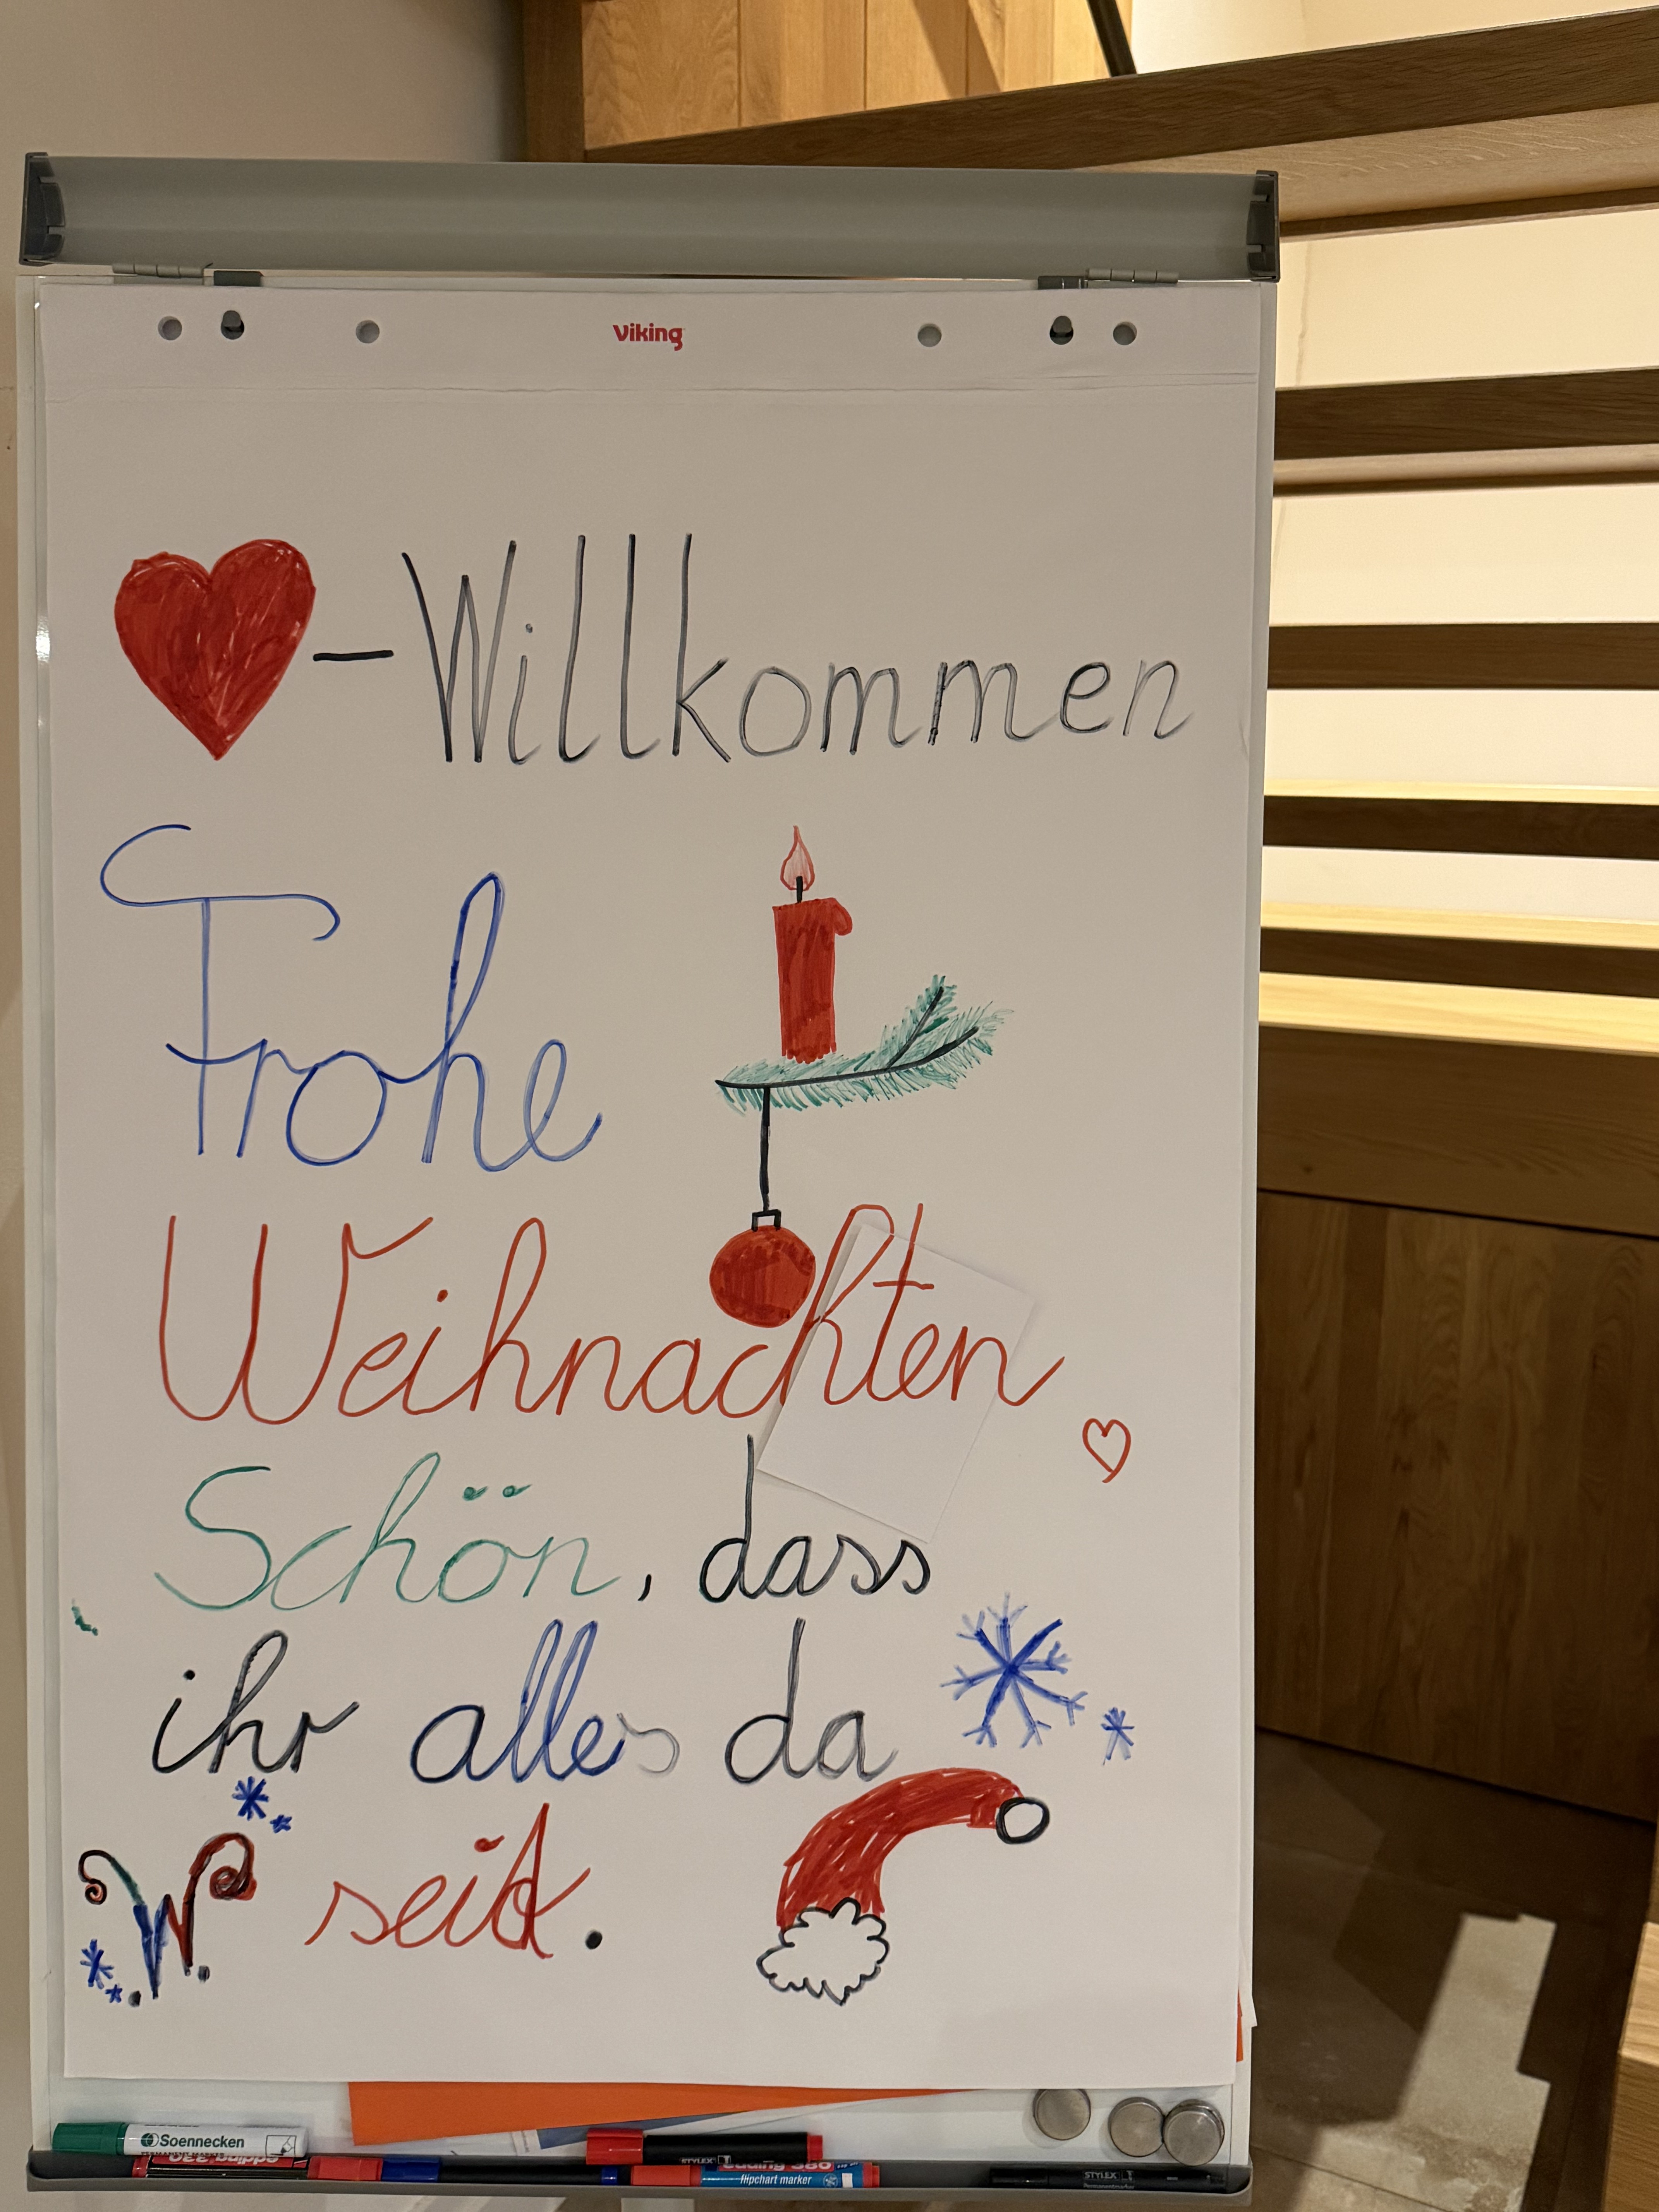 Viking
-Willkommen
Frohe
Weihnachten
Schön, dass
ihr alles da
W. seid.
Soennecken
edding 330
STYLEX
edding 380
flipchart marker
STYLEX